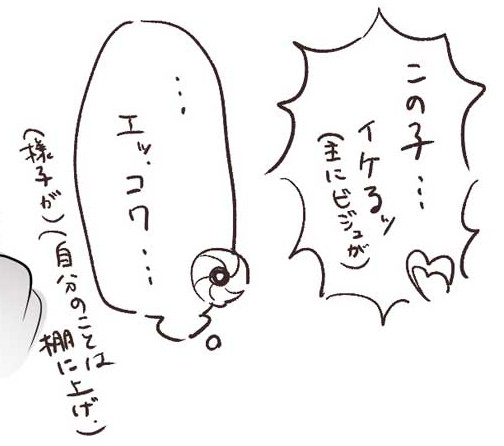 この子…
イケるッ
(主にビジュが)
…
エッ、コワ…
(様子が)
(自分のことは
棚に上げ.)